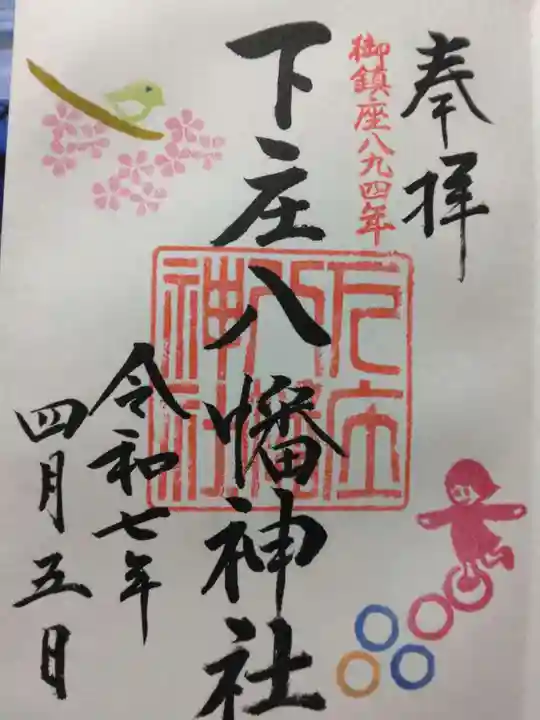 奉拝
御鎮座八九四年
下庄八幡神社
下庄
八幡
神社
令和七年
四月五日